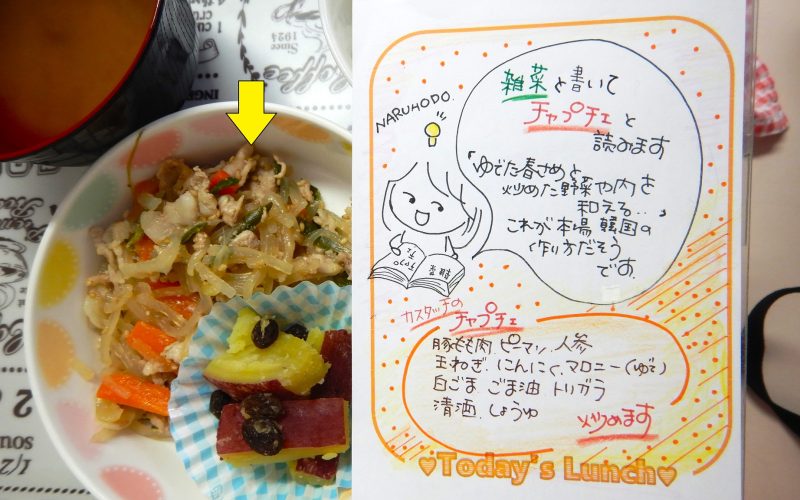 Coffee
Since
1924
NARUHODO.
雑菜と書いて
チャプチェと
読みます
「ゆでた春さめと
炒めた野菜や肉を
和える‥」
これが本場韓国の
作り方だそう
です。
カスタッチの
チャプチェ
豚もも肉、ピーマン、人参
玉ねぎ、にんにく、マロニー(ゆで)
白ごま ごま油 トリガラ
清酒、しょうゆ
炒めます
♥Today's Lunch♥